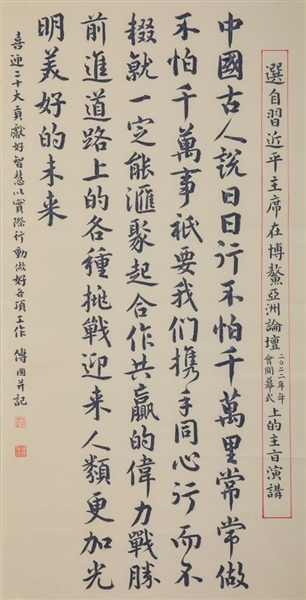 選自習近平主席在博鰲亞洲論壇二〇二二年年會開幕式上的主旨演講
中國古人說日日行不怕千萬里常常做
不怕千萬事祇要我们携手同心行而不
輟就一定能滙聚起合作共贏的偉力戰勝
前進道路上的各種挑戰迎来人類更加光
明美好的未来
喜迎二十大貢獻好智慧以實際行動做好各項工作 傅国并記